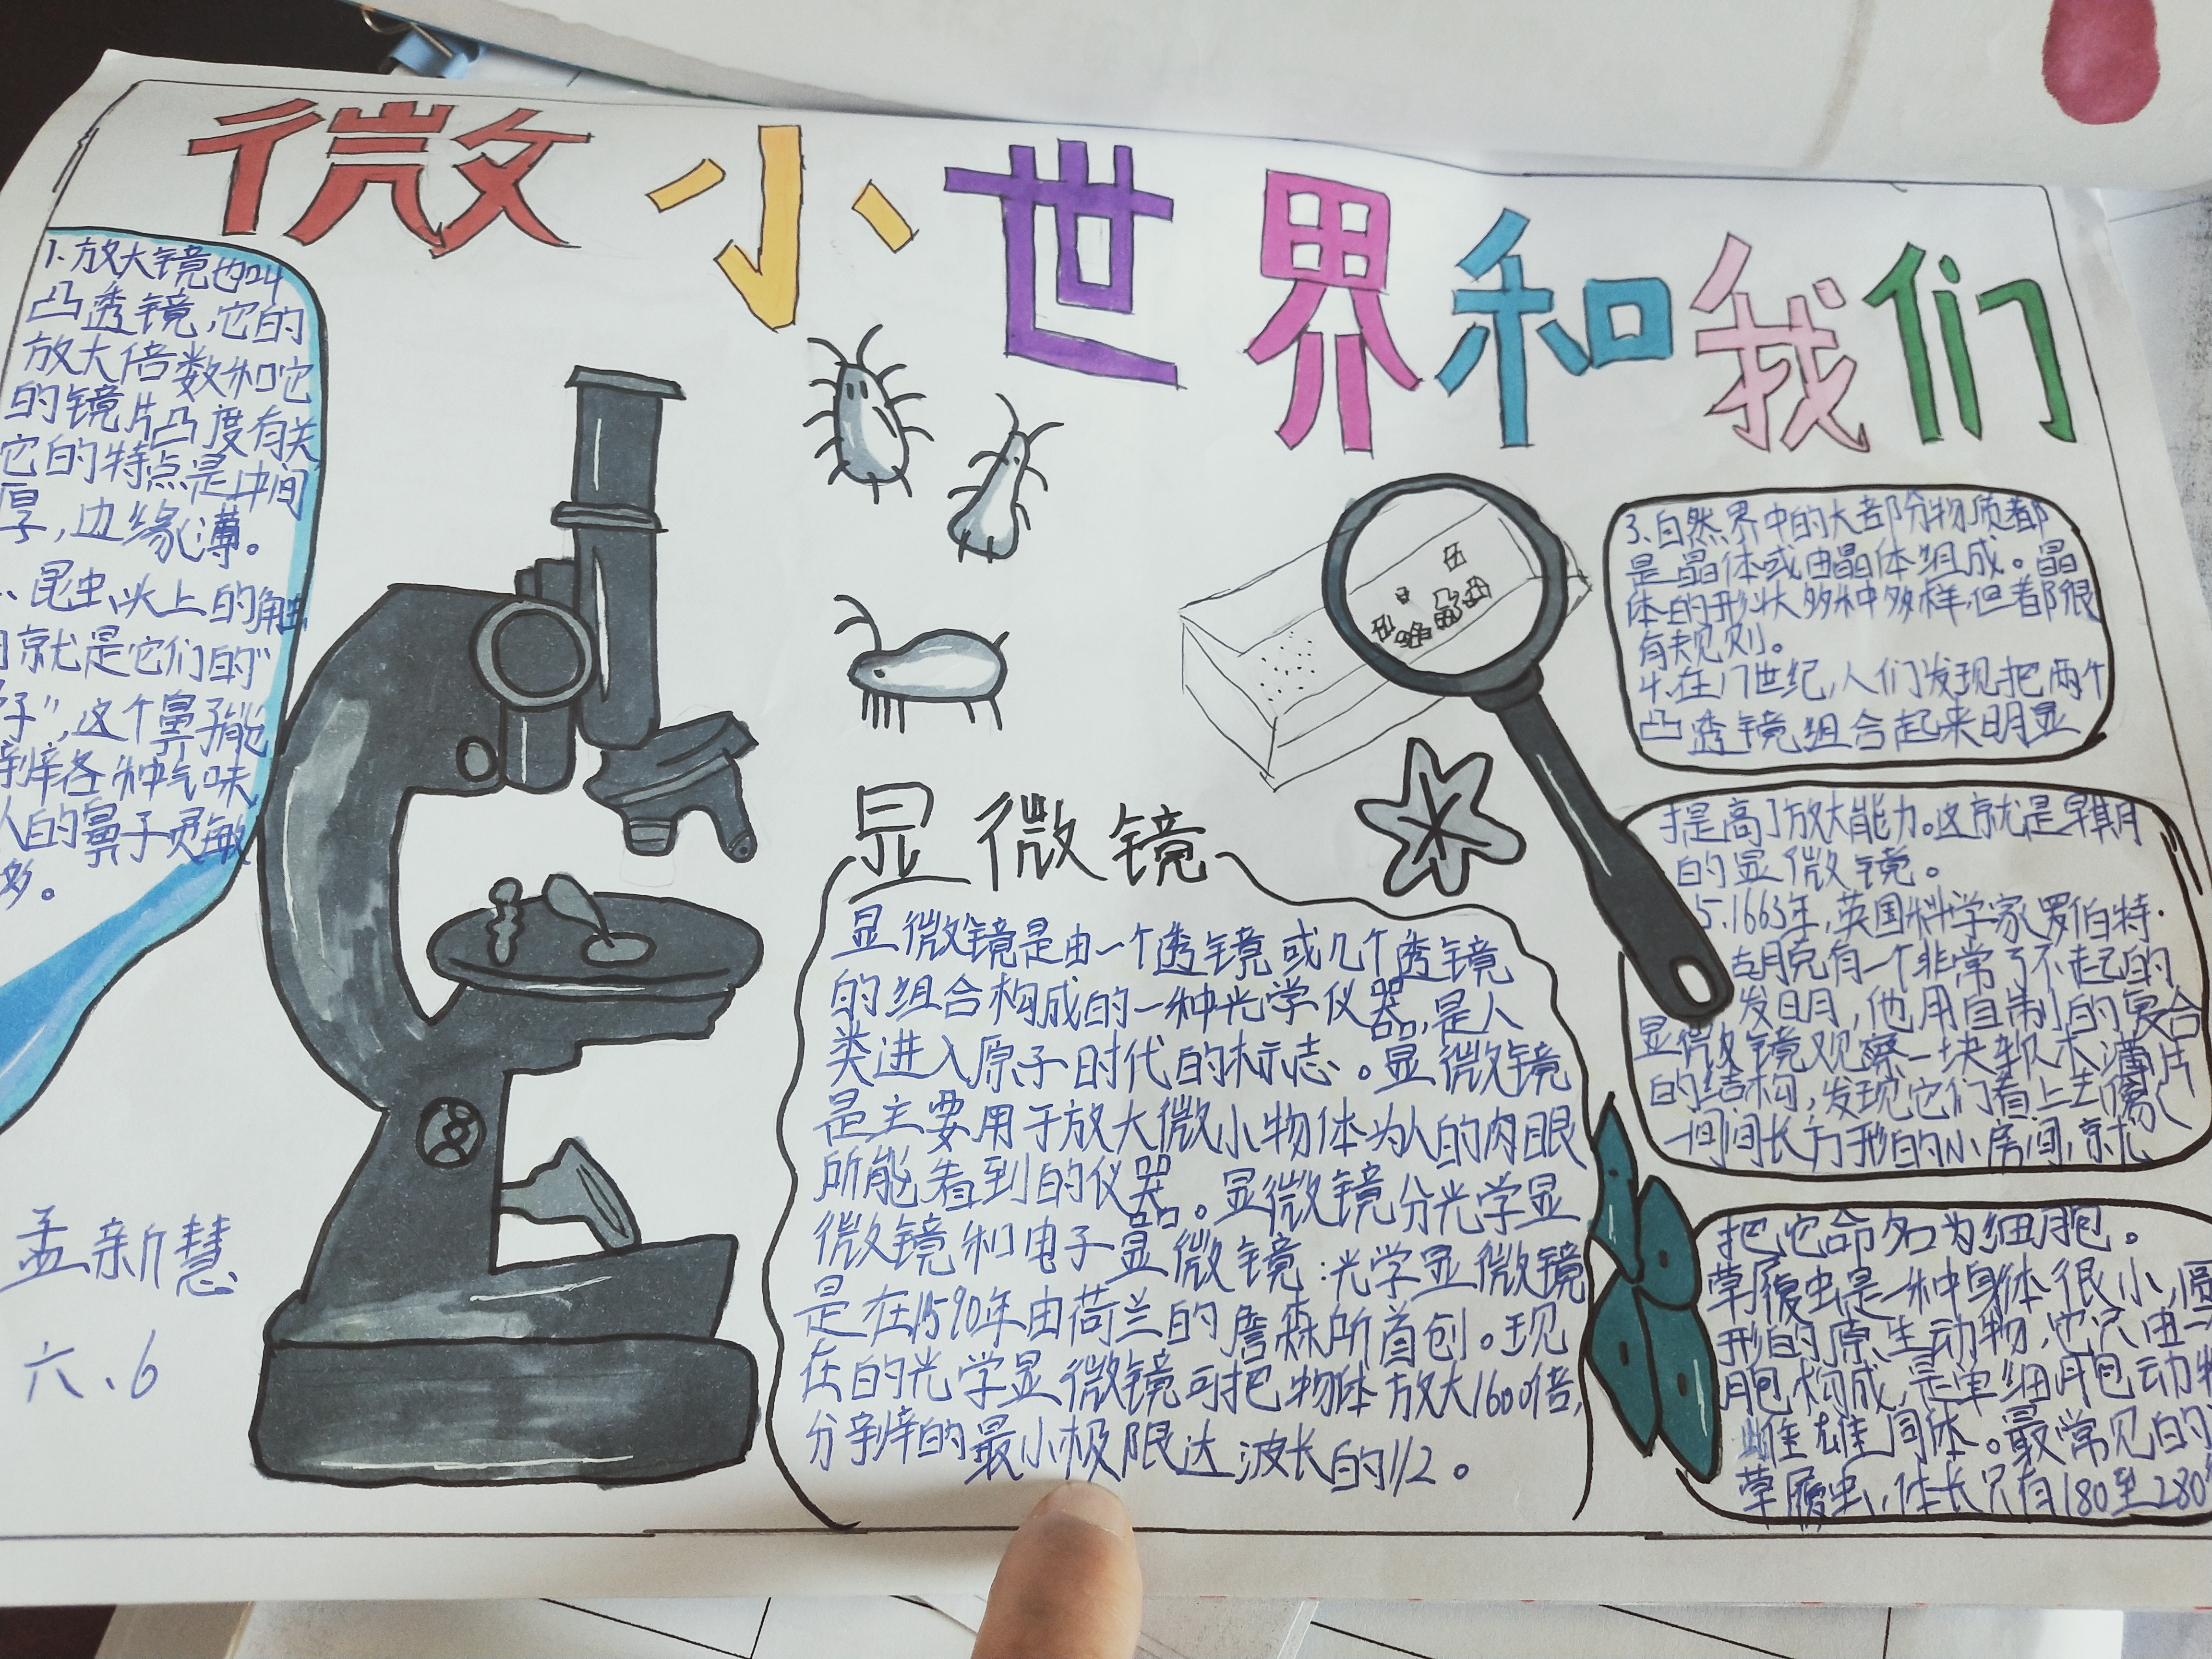 微小世界和我们
1.放大镜也叫
凸透镜,它的
放大倍数和它
的镜片凸度有关
它的特点是中间
厚,边缘薄。
昆虫头上的触
就是它们的“
子”,这个鼻子能
辨各种气味
人的鼻子灵敏
多。
孟新慧
六、6
显微镜
显微镜是由一个透镜或几个透镜
的组合构成的一种光学仪器,是人
类进入原子时代的标志。显微镜
是主要用于放大微小物体为人的肉眼
所能看到的仪器。显微镜分光学显
微镜和电子显微镜:光学显微镜
是在1590年由荷兰的詹森所首创。现
在的光学显微镜可把物体放大1600倍,
分辨的最小极限达波长的1/2。
3.自然界中的大部分物质都
是晶体或由晶体组成。晶
体的形状多种多样,但都很
有规则。
4.在17世纪,人们发现把两个
凸透镜组合起来明显
提高了放大能力。这就是早期
的显微镜。
5.1663年,英国科学家罗伯特·
胡克有一个非常了不起的
发明,他用自制的复合
显微镜观察一块软木薄片
的结构,发现它们看上去像
一间间长方形的小房间,就
把它命名为细胞。
草履虫是一种身体很小,圆
形的原生动物,它只由一
胞构成,是单细胞动物
雌雄同体。最常见的
草履虫,体长只有180至280